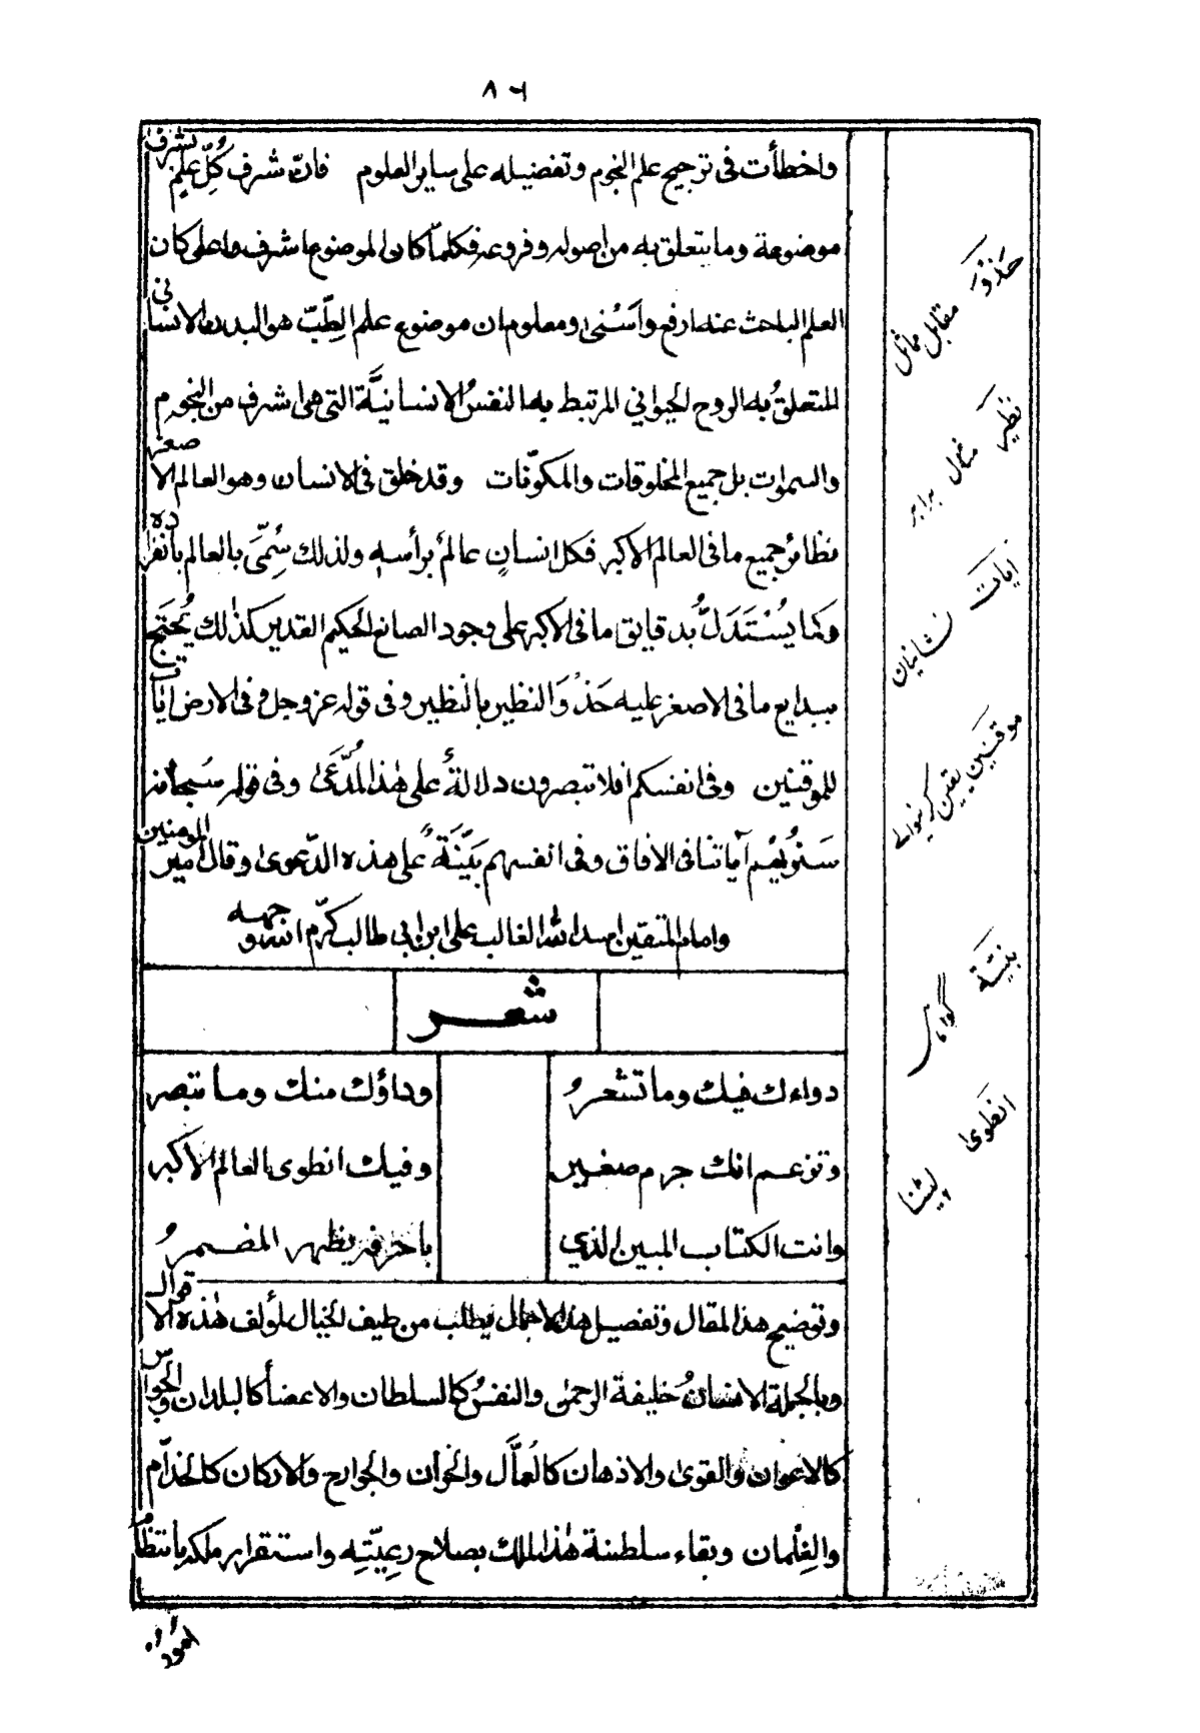 ٨٦
واخطأت فى ترجيح علم النجوم وتفضيله على ساير العلوم فانّ شرف كُلِّ علمٍ بشرف
موضوعة وما يتعلق به من اصوله وفروعه فكلمّا كان الموضوع اشرف واعلى كان
العلم الباحث عنه ارفع واَسْنىٰ ومعلوم ان موضوع علم الطِبّ هو البدن الانسانى
المتعلقُ به الروح الحيواني المرتبط به النفسُ الانسانيَّة التى هى اشرف من النجوم
والسموات بل جميع المخلوقات والمكوّنات وقد خلق فى الانسان وهو العالم الاصغر
نظائرُ جميع ما فى العالم الاكبر فكل انسانٍ عالمٌ برأسه ولذلك سُمّىَ بالعالم بانفراده
وكما يُسْتَدَلُّ بدقايق ما فى الاكبر على وجود الصانع الحكيم القدير كذالك يُحتَج
ببدايع ما فى الاصغر عليه حَذْوَ النظير بالنظير وفى قوله عز وجل وفى الارض ايات
للموقنين وفى انفسكم افلا تبصرون دلالةٌ على هٰذا المُدَّعَىٰ وفى قوله سبحانه
سَنُرِيْهِم آياتنا فى الافاق وفى انفسهم بَيِّنَةٌ على هذه الدّعوىٰ وقال امير المومنين
وامام المتقين اسد الله الغالب على ابن ابى طالب كرّم الله وجهه
شعر
دواءك فيك وما تشعرُ وداؤك منك وما تبصر
وتزعم انك جرم صغير وفيك انطوى العالم الاكبر
وانت الكتاب المبين الذي باحرفه يظهر المضمرُ
وتوضيح هذا المقال وتفصيل هذا الاجمال يطلب من طيف الخيال لمؤلف هٰذه الاقوال
وبالجملة الانسانُ خليفة الرحمٰن والنفسُ كالسلطان والاعضأ كالبلدان والحواس
كالاعوان والقوىٰ والاذهان كالعُمَّال والخوان والجوارح والاركان كالخدّام
والغِلمان وبقاء سلطنة هٰذا الملك بصلاح رعيّتِه واستقرار ملكه بانتظام
امور
حَذْوَ مقابل مماثل
نظير مثال برابر
ايات نشانيان
موقنين يقين كرنيوالے
بَيّنة گواہی
انطوىٰ لپٹنا